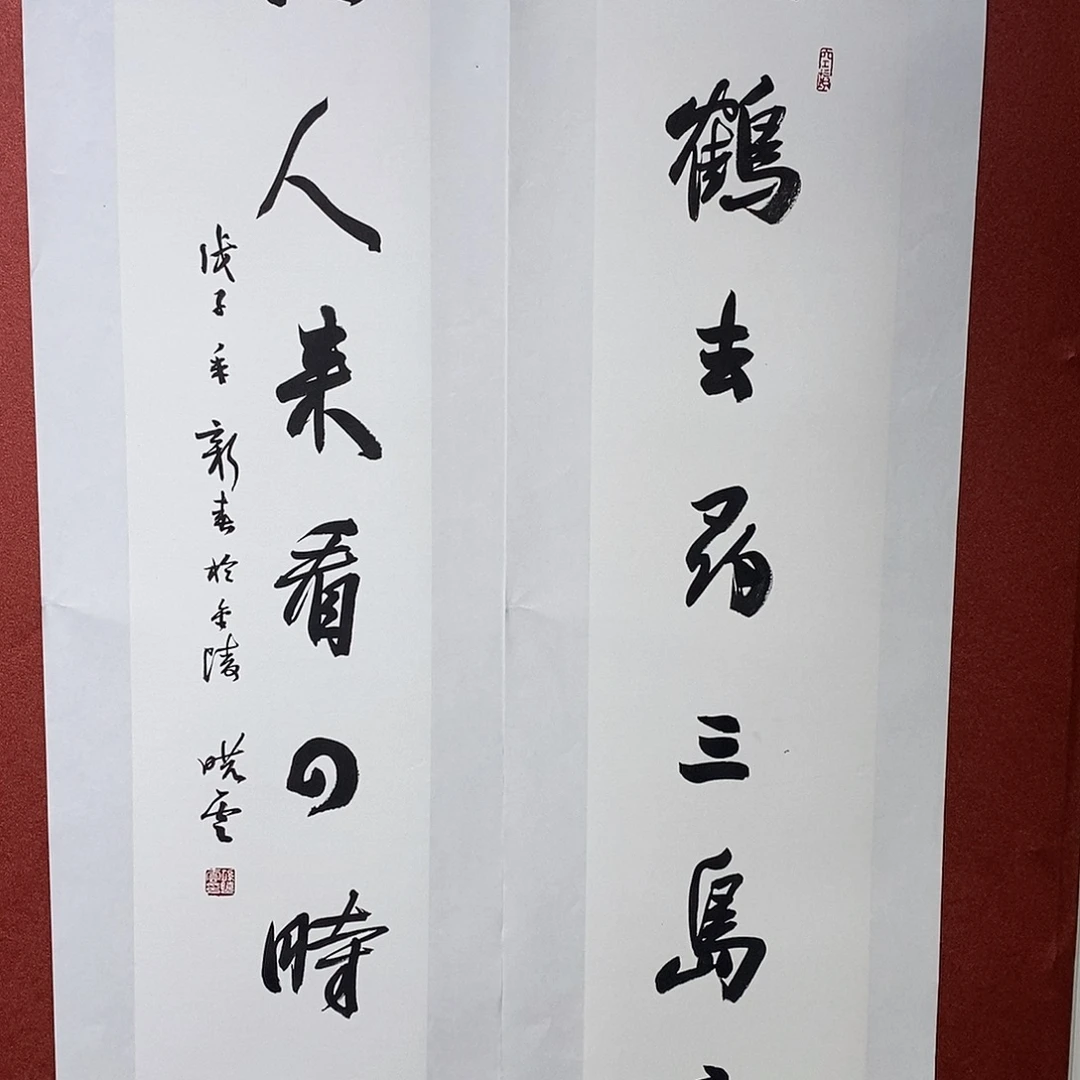 鶴去尋三島
人来看四時
戊子年新春於金陵 曉雲